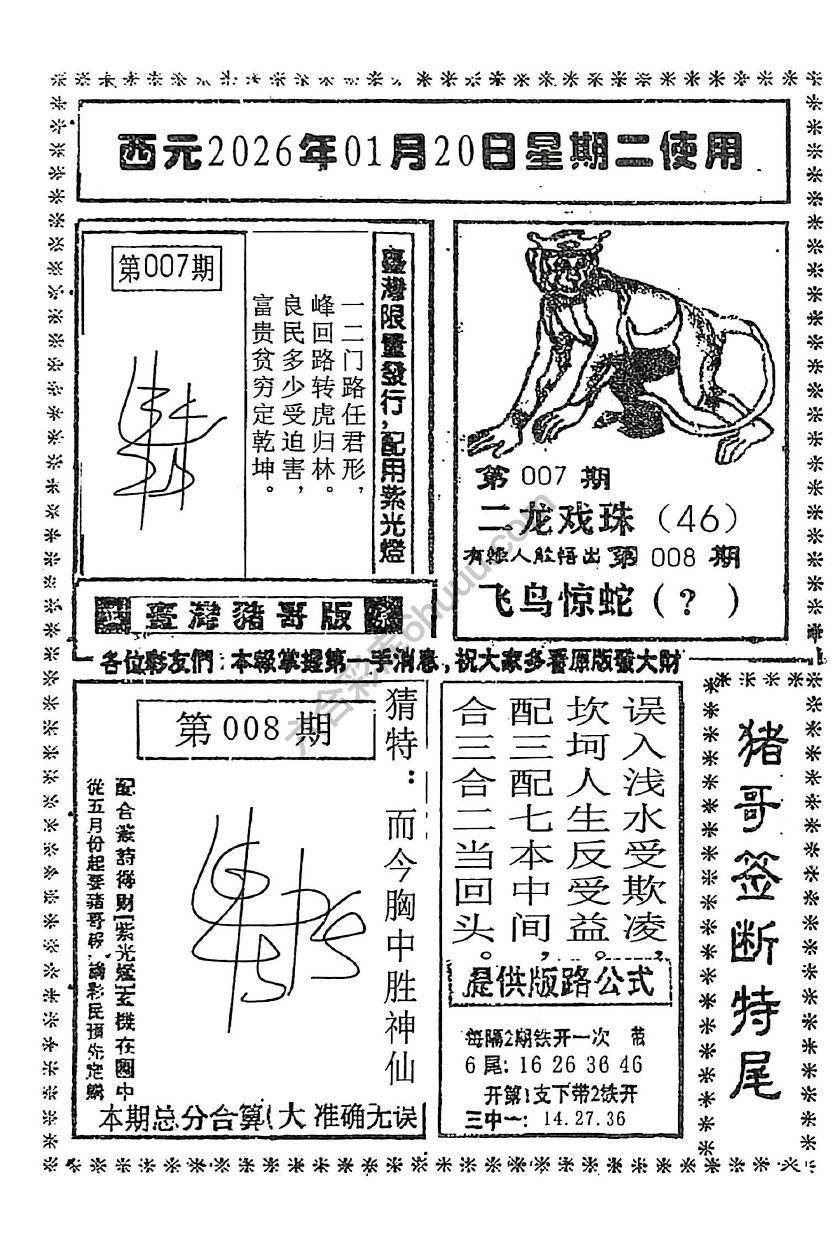 西元2026年01月20日星期二使用
第007期
臺灣限量發行,配用紫光燈
一二门路任君形,
峰回路转虎归林。
良民多少受迫害,
富贵贫穷定乾坤。
臺灣豬哥版
第007期
二龙戏珠(46)
有缘人能悟出第008期
飞鸟惊蛇(?)
各位彩友們:本報掌握第一手消息,祝大家多看原版發大財
第008期
猜特:而今胸中胜神仙
配合叢詩得財[紫光燈]玄機在圖中
從五月份起要豬哥報,請彩民預先定購
本期总分合算(大 准确无误
误入浅水受欺凌,
坎坷人生反受益。
配三配七本中间,
合三合二当回头。
提供版路公式
每隔2期铁开一次 带
6尾:16 26 36 46
开第1支下带2铁开
三中一:14.27.36
猪哥签断特尾
六合彩库6huuu.com